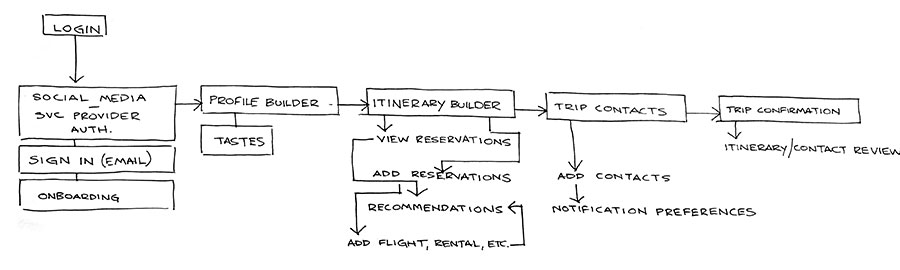 LOGIN
SOCIAL MEDIA
SVC PROVIDER
AUTH.
SIGN IN (EMAIL)
ONBOARDING
PROFILE BUILDER
TASTES
ITINERARY BUILDER
VIEW RESERVATIONS
ADD RESERVATIONS
RECOMMENDATIONS
ADD FLIGHT, RENTAL, ETC.
TRIP CONTACTS
ADD CONTACTS
NOTIFICATION PREFERENCES
TRIP CONFIRMATION
ITINERARY/CONTACT REVIEW